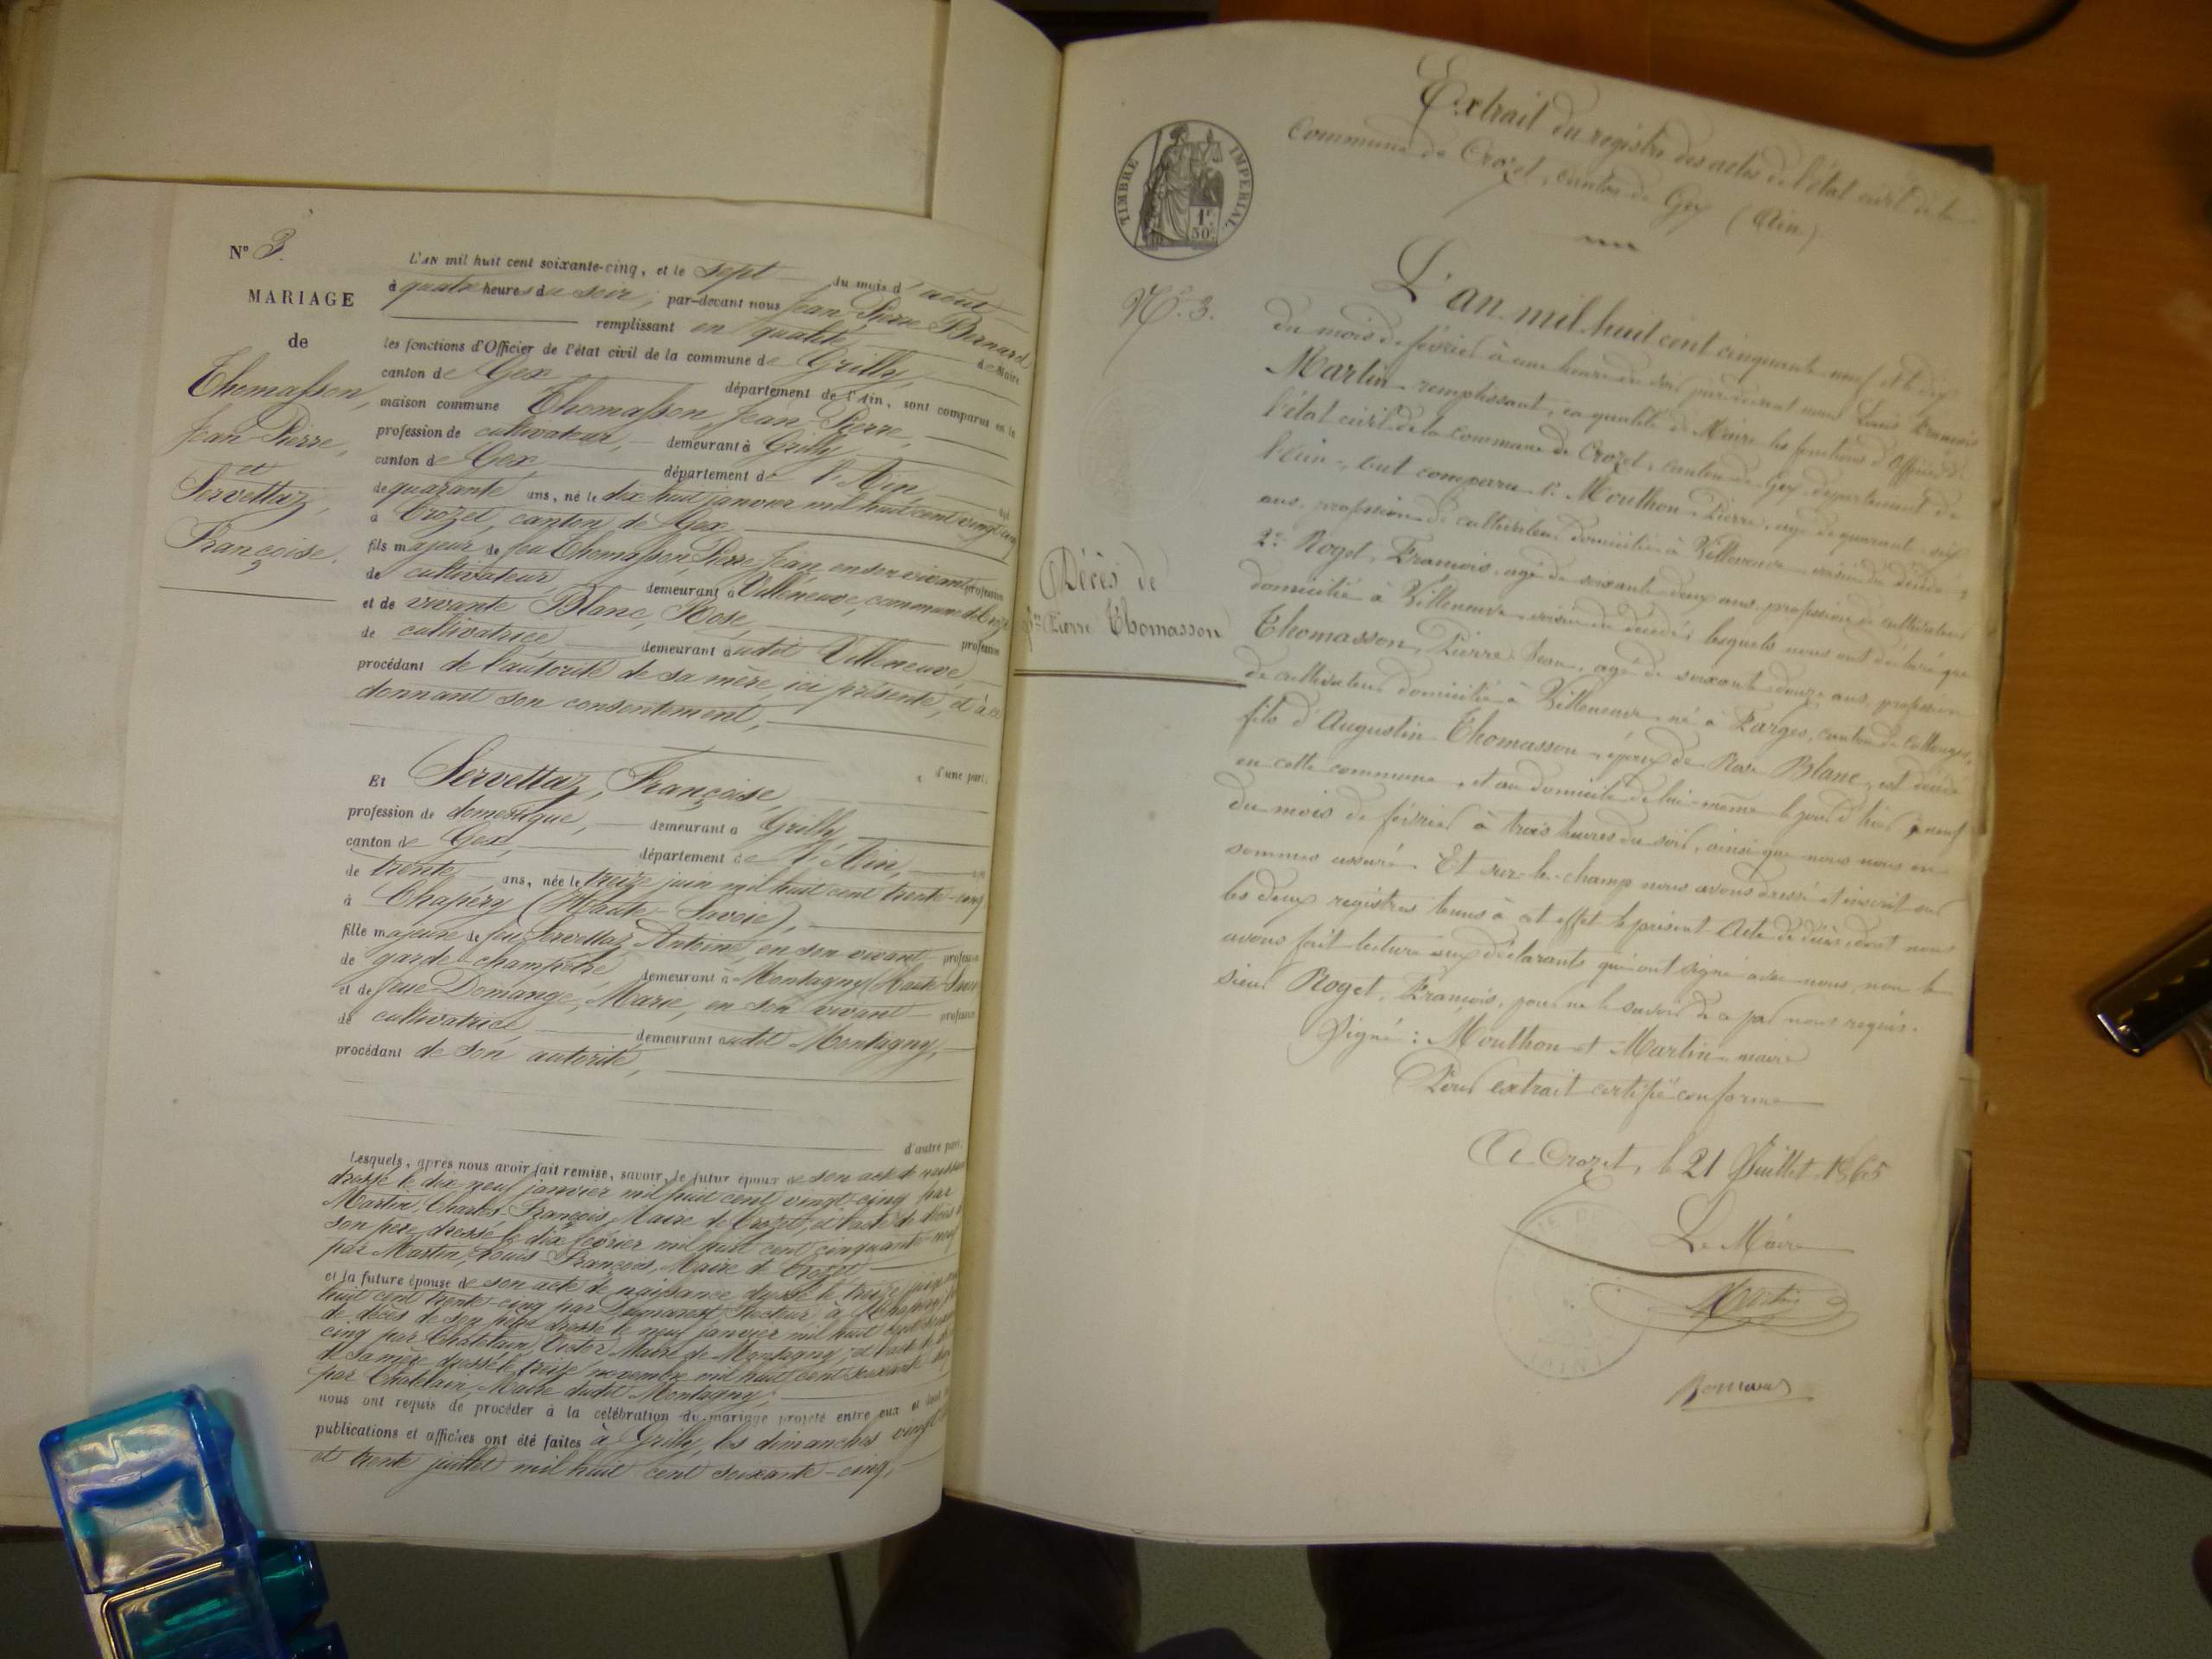 N° 3.
MARIAGE
de
Thomasson,
Jean Pierre,
et
Servettaz,
Françoise.
L'AN mil huit cent soixante-cinq, et le sept du mois d'août
à quatre heures du soir, par-devant nous Jean Pierre Bernard
remplissant en qualité de Maire
les fonctions d'Officier de l'état civil de la commune de Grilly,
canton de Gex département de l'Ain, sont comparus en la
maison commune Thomasson, Jean Pierre,
profession de cultivateur, demeurant à Grilly,
canton de Gex, département de l'Ain
de quarante ans, né le dix huit janvier mil huit cent vingt cinq
à Crozet, canton de Gex
fils majeur de feu Thomasson Pierre Jean, en son vivant profession
de cultivateur demeurant à Villeneuve, commune de Crozet
et de vivante Blanc, Rose, profession
de cultivatrice demeurant audit Villeneuve,
procédant de l'autorité de sa mère, ici présente, et à ce
donnant son consentement,
d'une part.
Et Servettaz, Françoise,
profession de domestique, demeurant à Grilly
canton de Gex, département de l'Ain,
de trente ans, née le treize juin mil huit cent trente-cinq
à Chapéry (Haute-Savoie),
fille majeure de feu Servettaz, Antoine, en son vivant profession
de garde-champêtre demeurant à Montagny (Haute-Savoie
et de feue Domange, Marie, en son vivant profession
de cultivatrice demeurant audit Montagny,
procédant de son autorité,
d'autre part.
Lesquels, après nous avoir fait remise, savoir, le futur époux de son acte de naissance
dressé le dix neuf janvier mil huit cent vingt-cinq par
Martin, Charles-François, Maire de Crozet, et l'acte de décès de
son père dressé le dix février mil huit cent cinquante-neuf
par Martin, Louis-François, Maire de Crozet
et la future épouse de son acte de naissance dressé le treize juin mil
huit cent trente-cinq par Recteur, à Chapéry,
de décès de son père dressé le neuf janvier mil huit cent
cinq par Châtelain, Victor, Maire de Montagny, et l'acte de
de sa mère dressé le treize novembre mil huit cent soixante
par Châtelain, Maire dudit Montagny,
nous ont requis de procéder à la célébration du mariage projeté entre eux et dont les
publications et affiches ont été faites à Grilly, les dimanches vingt
et trente juillet mil huit cent soixante-cinq,
Extrait du registre des actes de l'état civil de la
Commune de Crozet, canton de Gex (Ain)
TIMBRE IMPERIAL
1F
50C
N°. 3.
Décès de
Pierre Thomasson
L'an mil huit cent cinquante neuf et le dix
du mois de février à une heure du soir pardevant nous Louis François
Martin remplissant, en qualité de Maire les fonctions d'Officier de
l'état civil de la commune de Crozet, canton de Gex, département de
l'Ain, ont comparu 1°. Mouthon, Pierre, agé de quarante-six
ans, profession de cultivateur domicilié à Villeneuve voisin du décédé;
2°. Roget, François, agé de soixante-deux ans, profession de cultivateur
domicilié à Villeneuve, voisin du décédé; lesquels nous ont déclaré que
Thomasson, Pierre Jean, agé de soixante-douze ans, profession
de cultivateur domicilié à Villeneuve né à Farges, canton de Collonges,
fils d'Augustin Thomasson, époux de Rose Blanc, est décédé
en cette commune, et au domicile de lui-même le jour d'hier, neuf
du mois de février à trois heures du soir, ainsi que nous nous en
sommes assuré. Et sur-le-champ nous avons dressé et inscrit sur
les deux registres tenus à cet effet le présent Acte de décès dont nous
avons fait lecture aux déclarants qui ont signé avec nous, non le
sieur Roget, François, pour ne le savoir de ce par nous requis.
Signé: Mouthon et Martin maire
Pour extrait certifié conforme
A Crozet, le 21 Juillet 1865
Le Maire
Martin
(AIN)